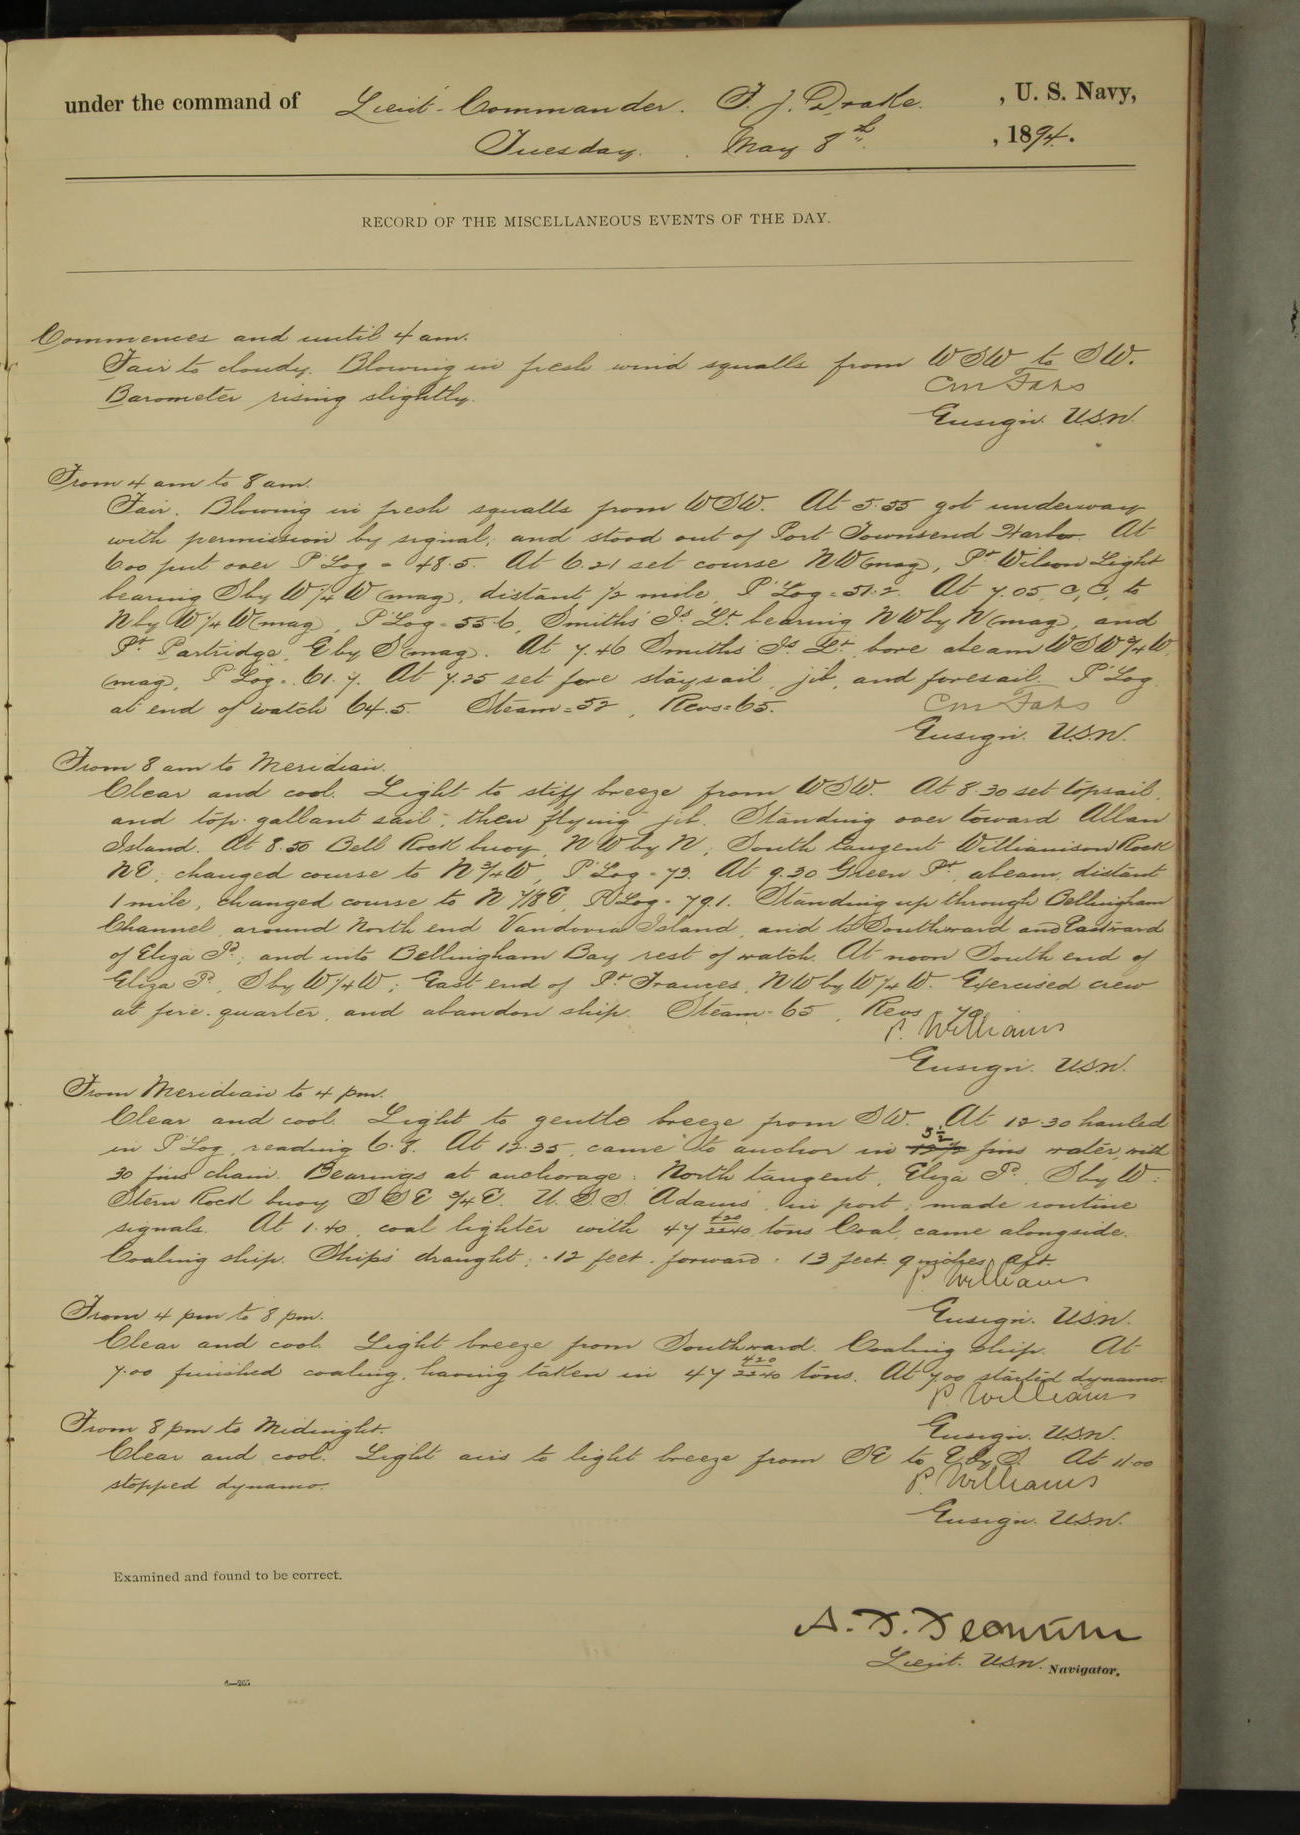 under the command of Lieut-Commander. F. J. Drake. , U. S. Navy,
Tuesday. May 8th. , 1894.
RECORD OF THE MISCELLANEOUS EVENTS OF THE DAY.
Commences and until 4 am.
Fair to cloudy. Blowing in fresh wind squalls from WSW to SW.
Barometer rising slightly.
C M Fahs
Ensign. U.S.N.
From 4 am to 8 am.
Fair. Blowing in fresh squalls from WSW. At 5.55 got underway
with permission by signal; and stood out of Port Townsend Harbor. At
6.00 put over P Log = 48.5. At 6.21 set course NW (mag), Pt Wilson Light
bearing S by W 1/4 W (mag), distant 1/2 mile, P Log = 51.2. At 7.05, C, C, to
N by W 1/4 W (mag), P Log = 55.6, Smiths Is Lt bearing NW by N (mag), and
Pt Partridge, E by S (mag). At 7.46 Smiths Is Lt bore abeam WSW 3/4 W
(mag), P Log = 61.7. At 7.25 set fore staysail, jib, and foresail. P Log
at end of watch 64.5. Steam = 52, Revs = 65.
C M Fahs
Ensign. U.S.N.
From 8 am to Meridian.
Clear and cool. Light to stiff breeze from WSW. At 8.30 set topsail,
and top-gallant sail; then flying jib. Standing over toward Allan
Island. At 8.50 Bell Rock buoy, NW by N, South tangent Williamson Rock
NE; changed course to N 3/4 W, P Log = 73. At 9.30 Green Pt, abeam, distant
1 mile, changed course to N 7/8 E, P Log = 79.1. Standing up through Bellingham
Channel, around North end Vandovia Island, and to Southward and Eastward
of Eliza Id; and into Bellingham Bay rest of watch. At noon South end of
Eliza Id, S by W 1/4 W; East end of Pt Frances, NW by W 1/4 W. Exercised crew
at fire-quarter, and abandon ship. Steam = 65, Revs = 70.
P. Williams
Ensign. U.S.N.
From Meridian to 4 pm.
Clear and cool. Light to gentle breeze from SW. At 12.30 hauled
in P Log, reading 6.8. At 12.35, came to anchor in 5 1/2 fms water, with
30 fms chain. Bearings at anchorage: North tangent, Eliza Id, S by W;
Stern Rock buoy SSE 3/4 E. U.S.S. Adams, in port; made routine
signals. At 1.40, coal lighter with 47 420/2240 tons Coal, came alongside.
Coaling ship. Ships draught; 12 feet forward - 13 feet 9 inches, aft.
P. Williams
Ensign. U.S.N.
From 4 pm to 8 pm.
Clear and cool. Light breeze from Southward. Coaling ship. At
7.00 finished coaling, having taken in 47 420/2240 tons. At 7.00 started dynamo.
P. Williams
Ensign. U.S.N.
From 8 pm to Midnight.
Clear and cool. Light airs to light breeze from SE to E by S. At 11.00
stopped dynamo.
P. Williams
Ensign. U.S.N.
Examined and found to be correct.
Lieut. U.S.N. Navigator.
6—205